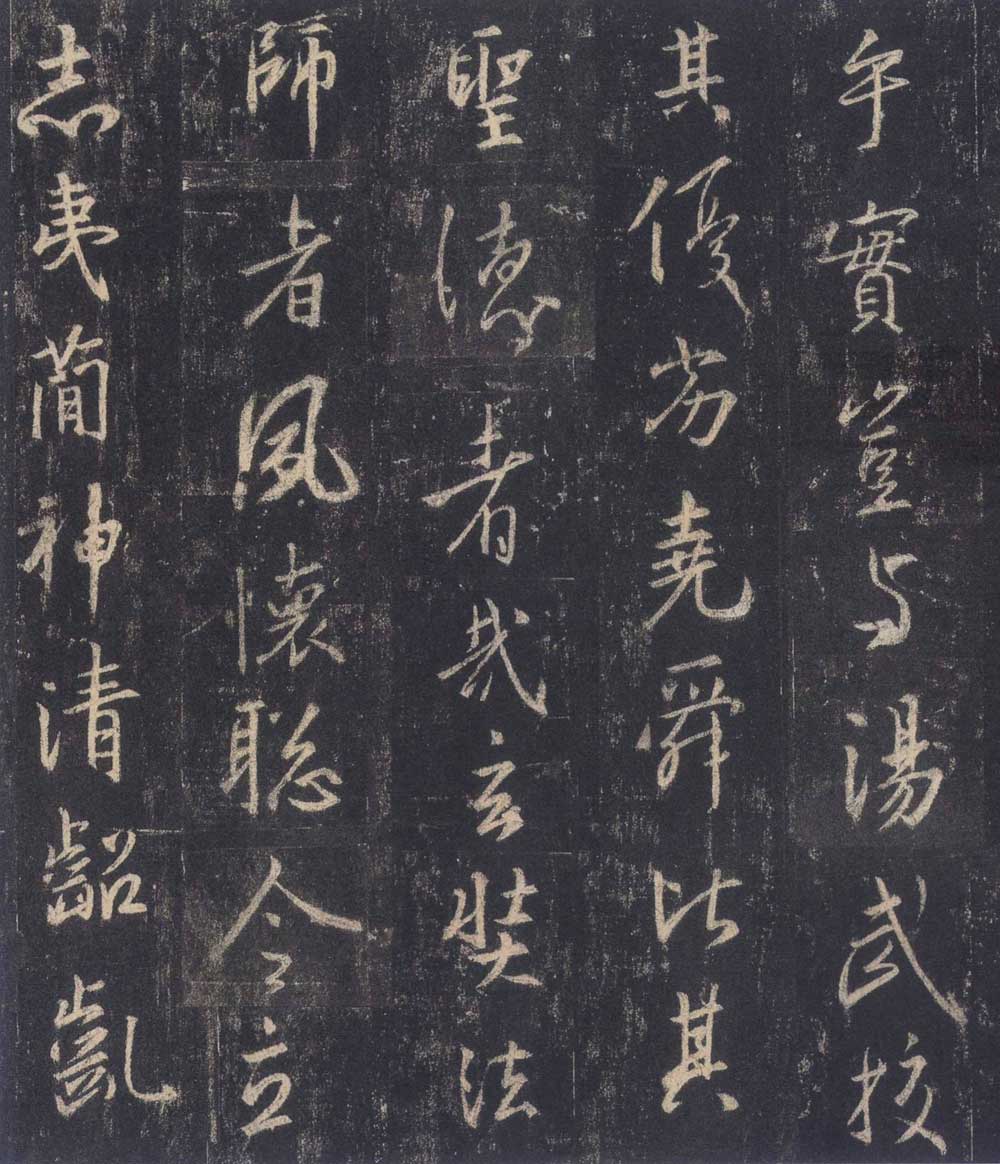 乎實豈與湯武挍
其優劣堯舜比其
聖德者哉玄奘法
師者夙懷聰令立
志夷簡神清齠齔